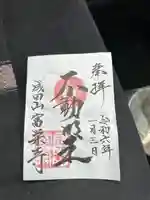 奉拝
令和六年
一月三日
不動明王
成田山
富栄寺